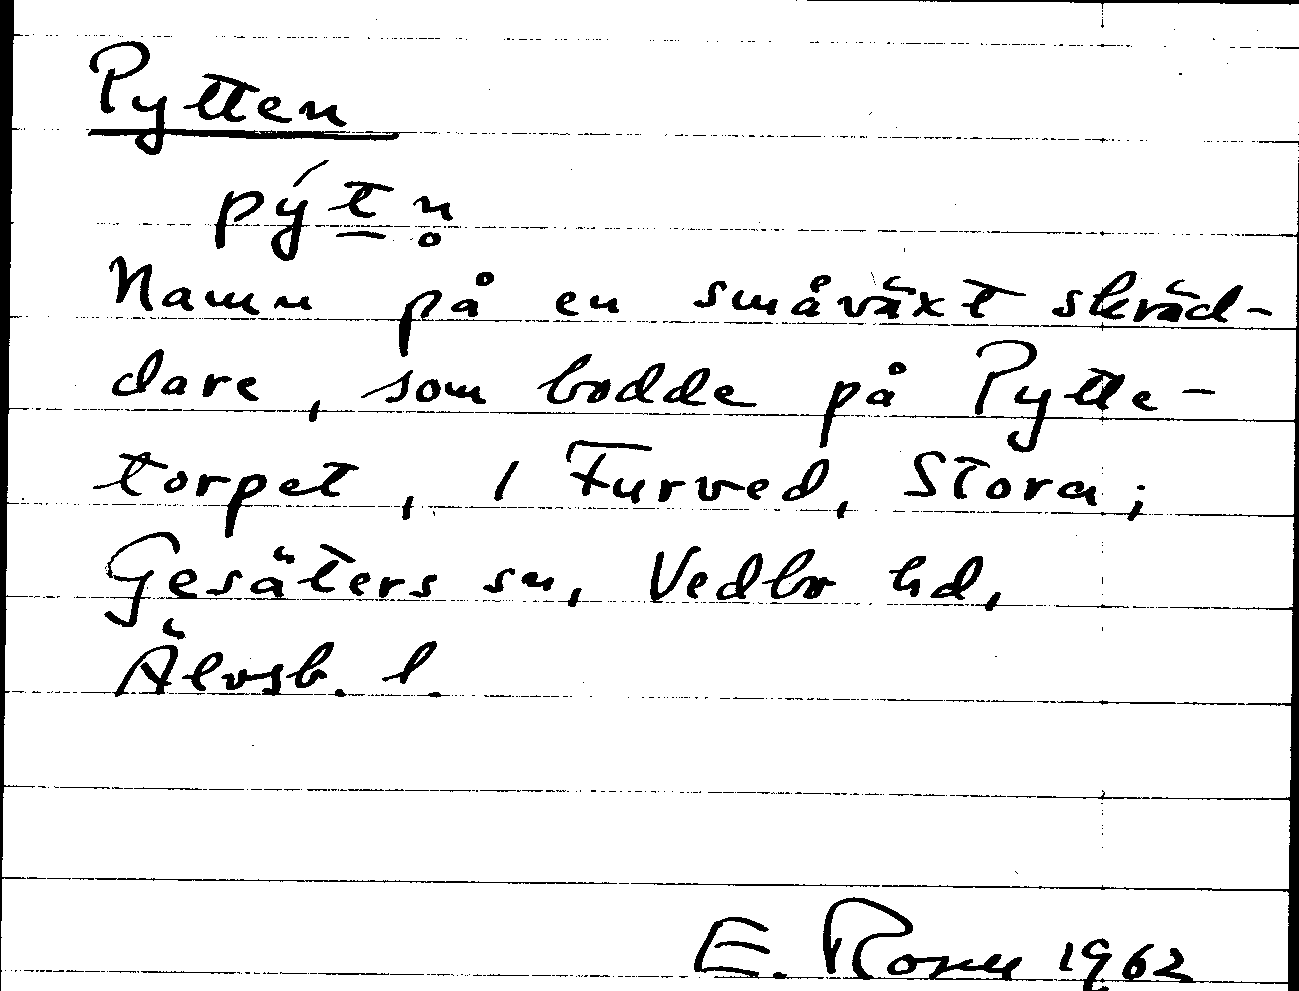 Pytten
pýtn̥
Namn på en småväxt skräd-
dare, som bodde på Pytte-
torpet, 1 Furved, Stora;
Gesäters sn, Vedbo hd,
Älvsb. l.
E. Rosu 1962